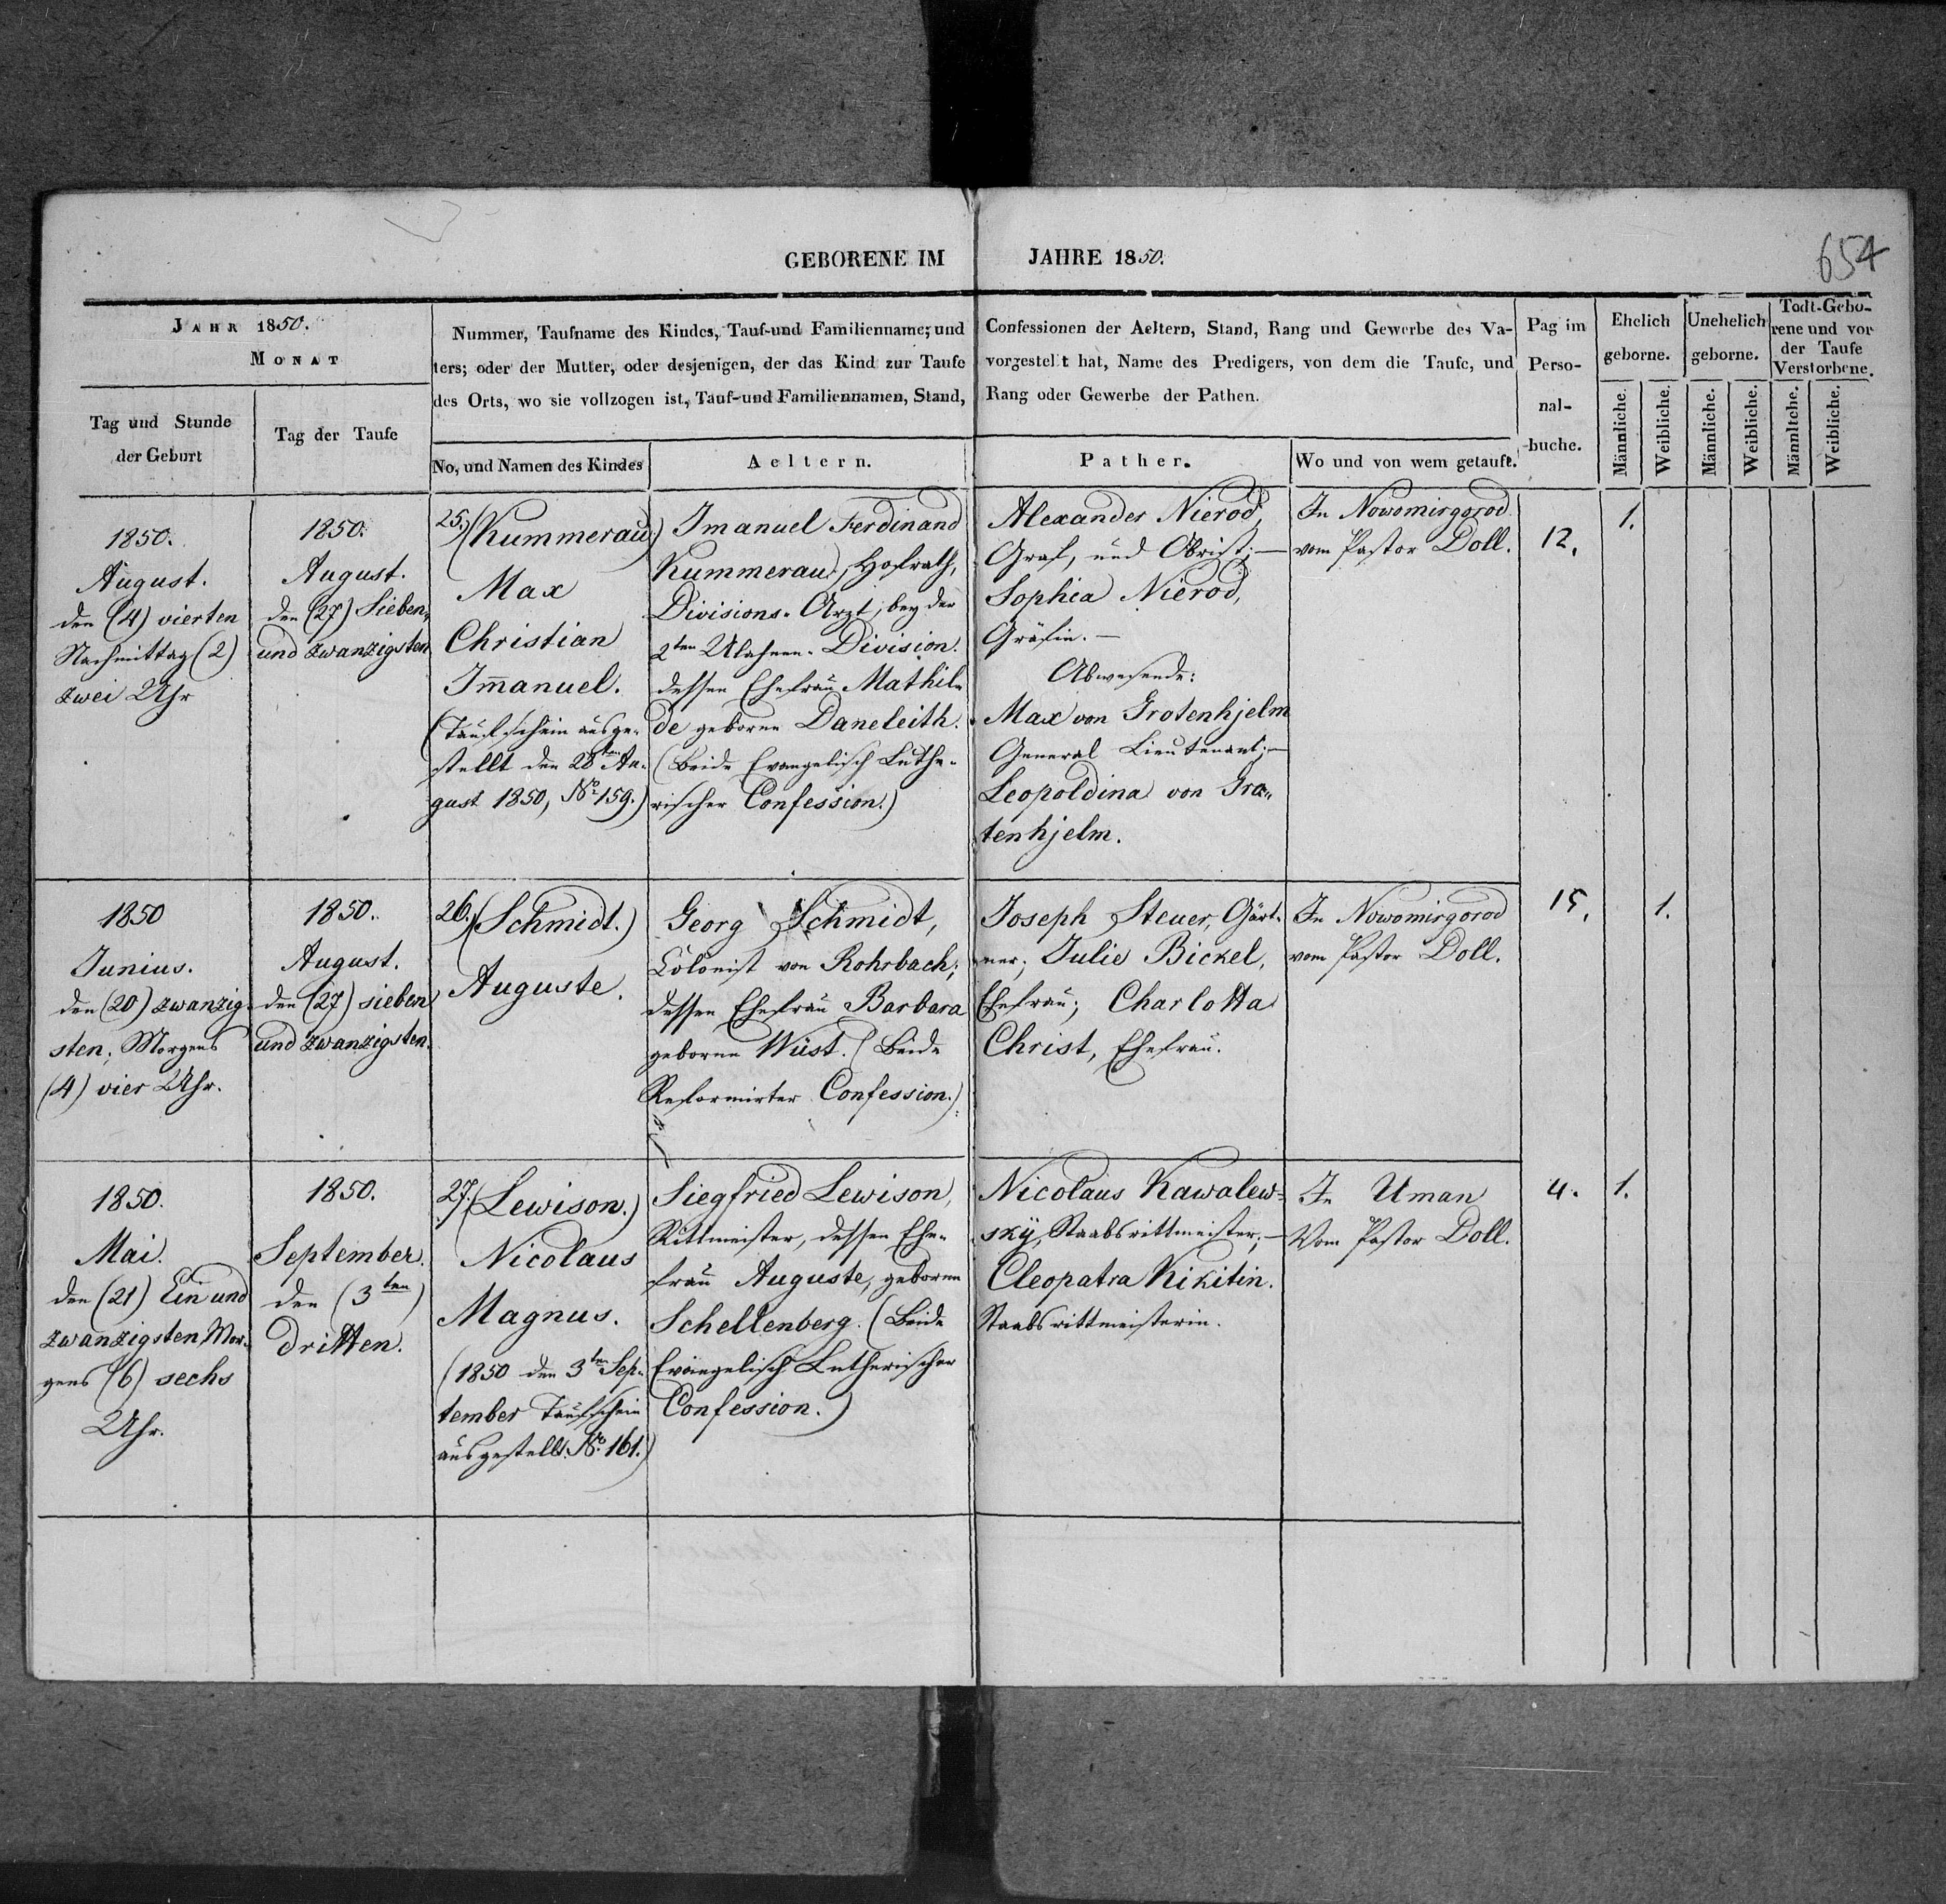 GEBORENE IM JAHRE 1850.
654
JAHR 1850.
MONAT
Tag und Stunde
der Geburt
Tag der Taufe
Nummer, Taufname des Kindes, Tauf-und Familienname; und Confessionen der Aeltern, Stand, Rang und Gewerbe des Va-
ters; oder der Mutter, oder desjenigen, der das Kind zur Taufe vorgestellt hat, Name des Predigers, von dem die Taufe, und
des Orts, wo sie vollzogen ist, Tauf-und Familiennamen, Stand, Rang oder Gewerbe der Pathen.
No, und Namen des Kindes
Aeltern.
Pather.
Wo und von wem getauft.
Pag im
Perso-
nal-
buche.
Ehelich
geborne.
Unehelich
geborne.
Todt-Gebo-
rene und vor
der Taufe
Verstorbene.
Männliche.
Weibliche.
Männliche.
Weibliche.
Männltche.
Weibliche.
1850.
August.
den (4) vierten
Nachmittag (2)
zwei Uhr
1850.
August.
den (27) Sieben
und zwanzigsten
25.) (Kummerau.)
Max
Christian
Im̄anuel.
(Taufschein ausge-
stellt den 28ten Au-
gust 1850, No. 159.)
Imanuel Ferdinand
Kummerau, Hofrath,
Divisions-Arzt, bey der
2ten Ulahnen-Division.
dessen Ehefrau Mathil-
de geborne Daneleith.
(Beide Evangelisch Luthe-
rischer Confession.)
Alexander Nierod,
Graf, und Obrist; —
Sophia Nierod,
Gräfin. —
Abwesende:
Max von Grotenhjelm
General Lieutenant; —
Leopoldina von Gro-
tenhjelm.
In Nowomirgorod
vom Pastor Doll.
12.
1.
1850
Junius.
den (20) zwanzig-
sten; Morgens
(4) vier Uhr.
1850.
August.
den (27) sieben
und zwanzigsten.
26.) (Schmidt.)
Auguste.
Georg Schmidt,
Colonist von Rohrbach;
dessen Ehefrau Barbara
geborne Wüst. (Beide
Reformirter Confession.)
Joseph Steuer, Gärt-
ner; Julie Bickel,
Ehefrau; Charlotta
Christ, Ehefrau.
In Nowomirgorod
vom Pastor Doll.
15.
1.
1850.
Mai.
den (21) Ein und
zwanzigsten, Mor-
gens (6) sechs
Uhr.
1850.
September.
den (3ten)
dritten.
27.) (Lewison.)
Nicolaus
Magnus.
(1850 den 3ten Sep-
tember Taufschein
ausgestellt. No. 161.)
Siegfried Lewison,
Rittmeister, dessen Ehe-
frau Auguste, geborne
Schellenberg. (Beide
Evangelisch Lutherischer
Confession.)
Nicolaus Kawalew-
skÿ, Staabsrittmeister; —
Cleopatra Nikitin.
Staabsrittmeisterin.
In Uman
Vom Pastor Doll.
4.
1.